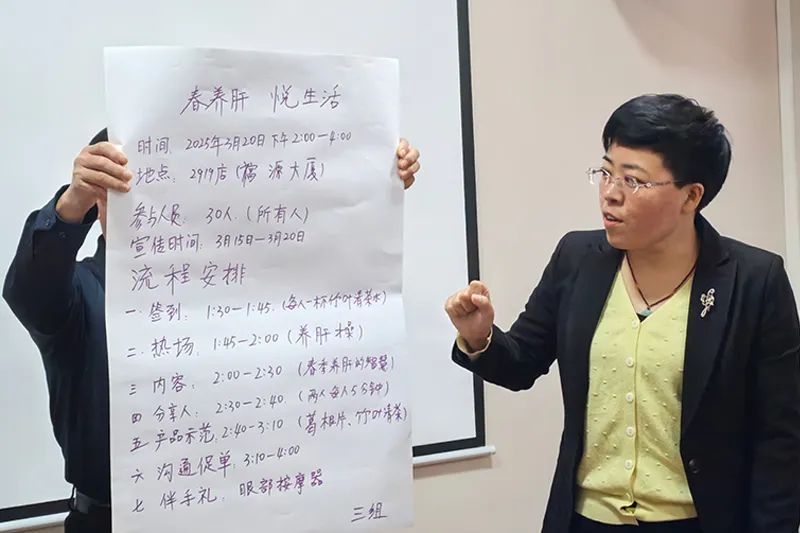 春养肝 悦生活
时间：2025年3月20日下午2:00—4:00
地点：2919店（福源大厦）
参与人员：30人.（所有人）
宣传时间：3月15日—3月20日
流程安排
一.签到：1:30—1:45.（每人一杯竹叶清茶水）
二.热场：1:45—2:00（养肝操）
三 内容：2:00—2:30（春季养肝的智慧）
四 分享人：2:30—2:40（两人每人5分钟）
五 产品示范：2:40—3:10（葛根片、竹叶清茶）
六 沟通促单：3:10—4:00
七 伴手礼：眼部按摩器
三组